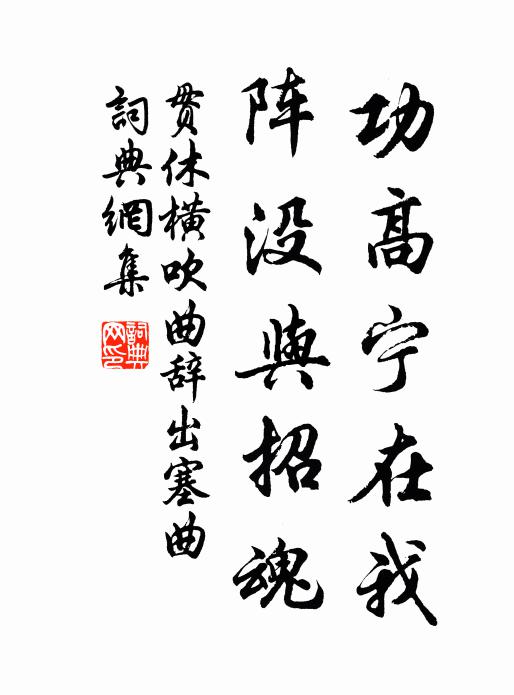 功高宁在我
阵没與招魂
贯休横吹曲辞出塞曲
詞典網集
詞典网印